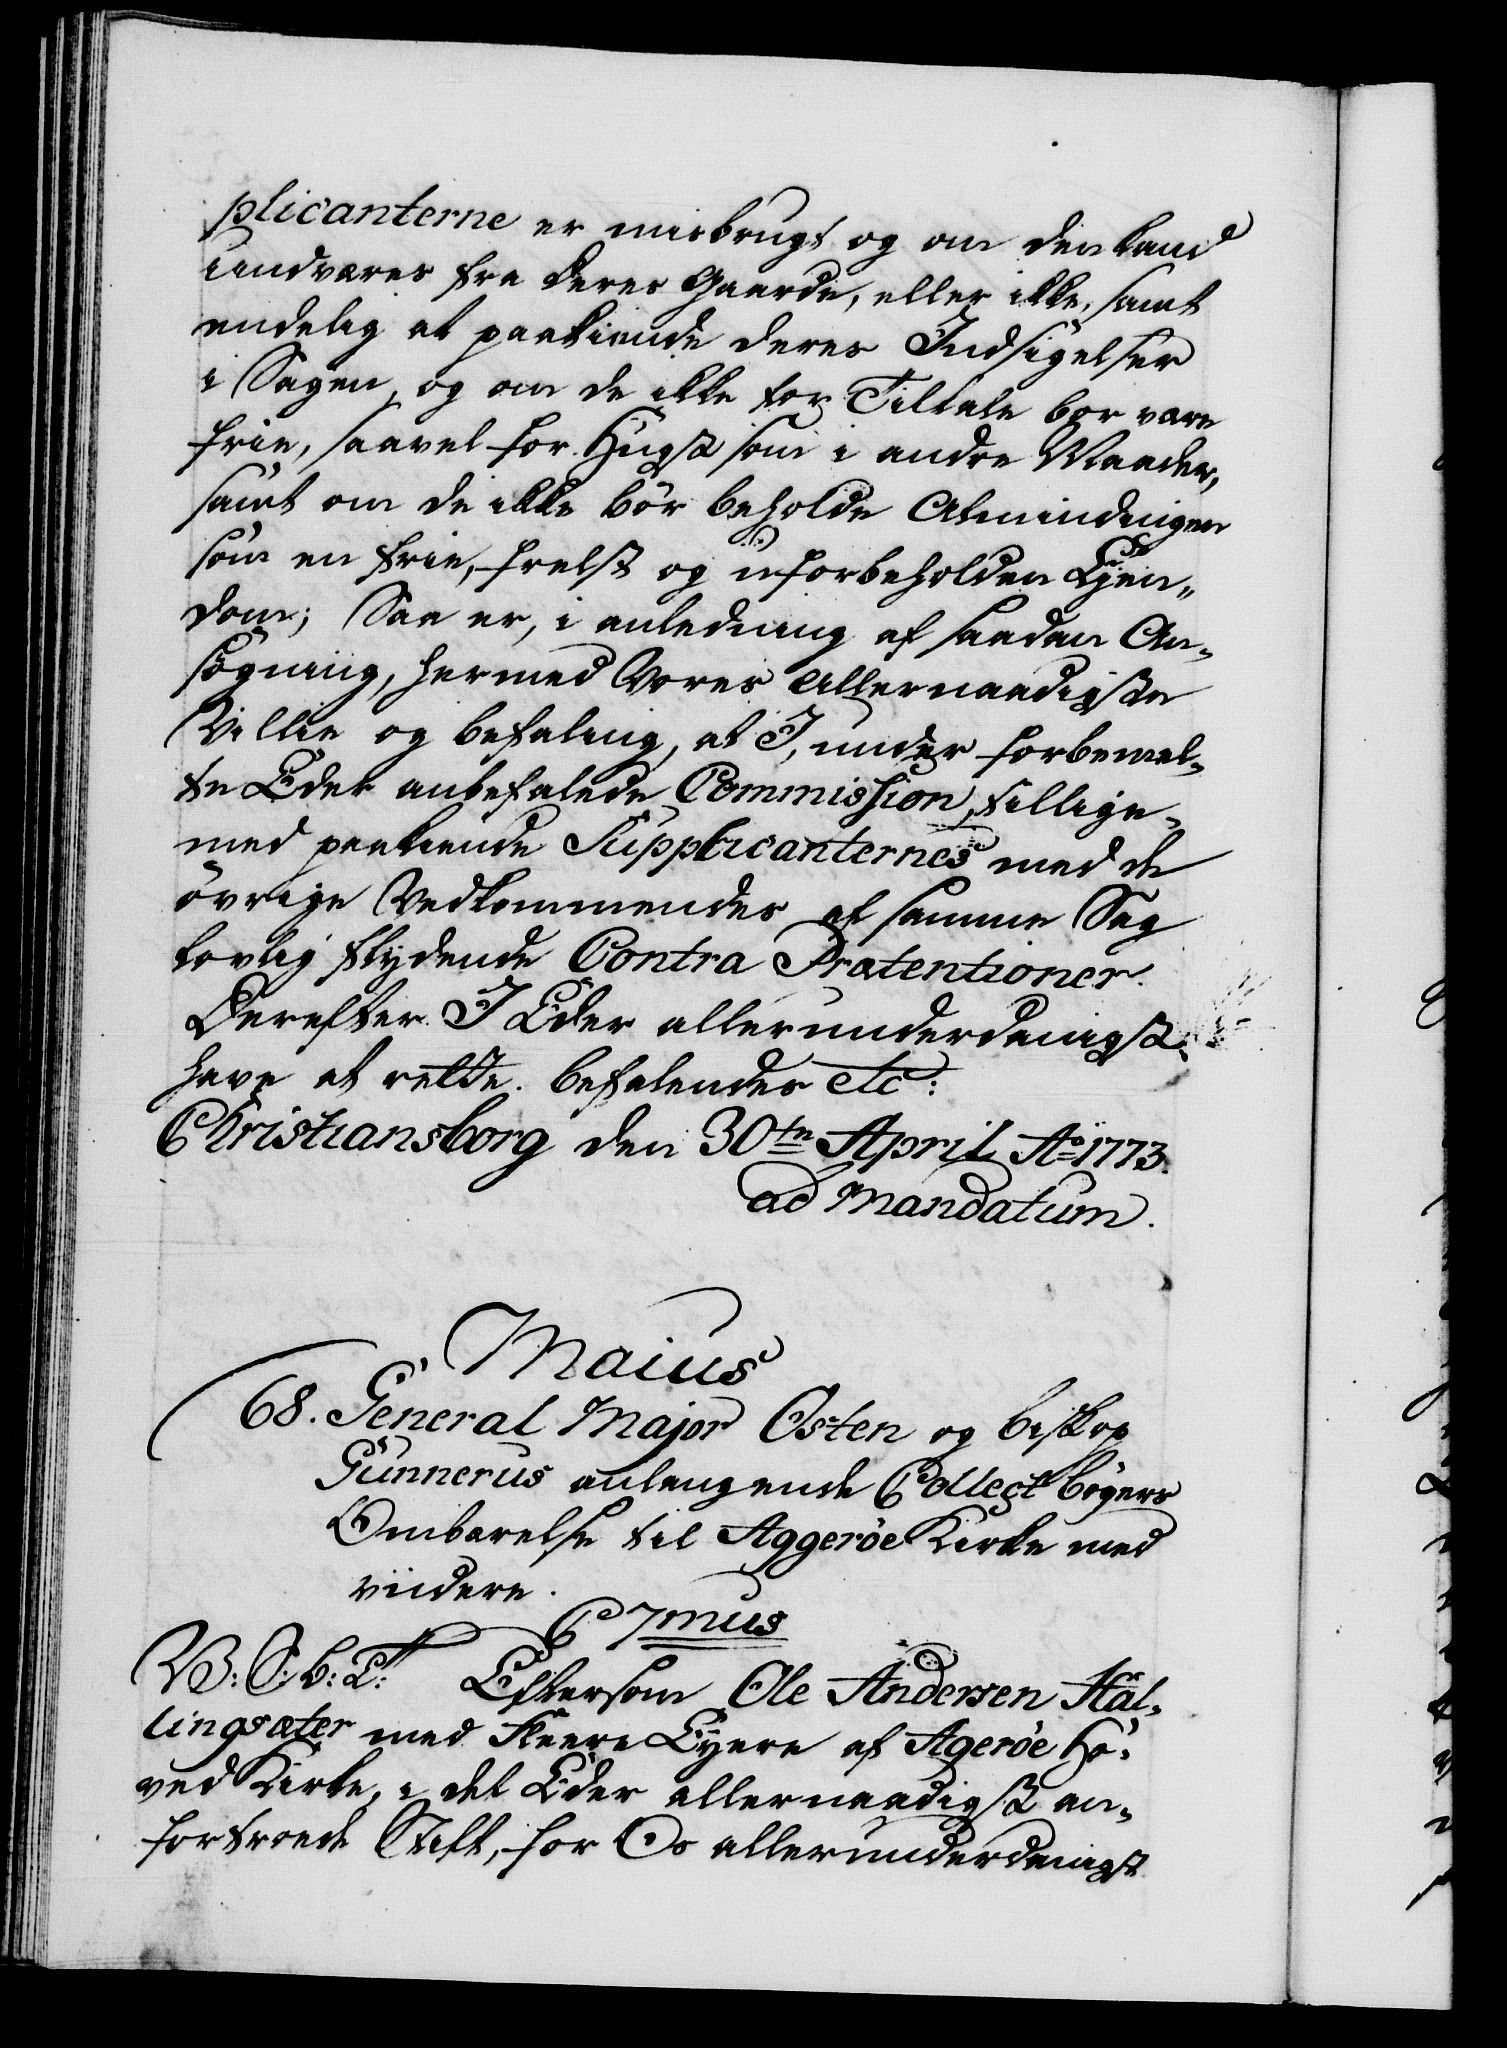 plicanterne er misbrugt og om den kand
undværes fra deres Gaarde, eller ikke, samt
endelig at paakiende deres Indsigelser
i Sagen, og om de ikke for Tiltale bør være
frie, saavel for Hugst som i andre Maader,
samt om de ikke bör beholde Almindingen
som en frie, frelst og uforbeholden Eyen„
dom; Saa er, i anledning af saadan An„
søgning, hermed Vores allernaadigste
Villie og befaling, at I, under forbemel„
te Eder anbefalede Commission, tillige„
med paakiende Supplicanternes med de
övrige Vedkommendes af samme Sag
lovlig flydende Contra Prætentioner.
Derefter I Eder allerunderdanigst
have at rette. befalendes etc:
Christiansborg den 30te April Ao 1773.
ad Mandatum.
Maius
68. General Major Osten og biskop
Gunnerus anlangende Collect bögers
Ombærelse til Aggeröe Kirke med
viidere.
C 7mus
V: S: b: T: Eftersom Ole Andersen Hal„
lingsæter med Fleere Eyere af Ageröe Ho„
ved Kirke, i det Eder allernaadigst an„
fortroede Stift, for Os allerunderdanigst